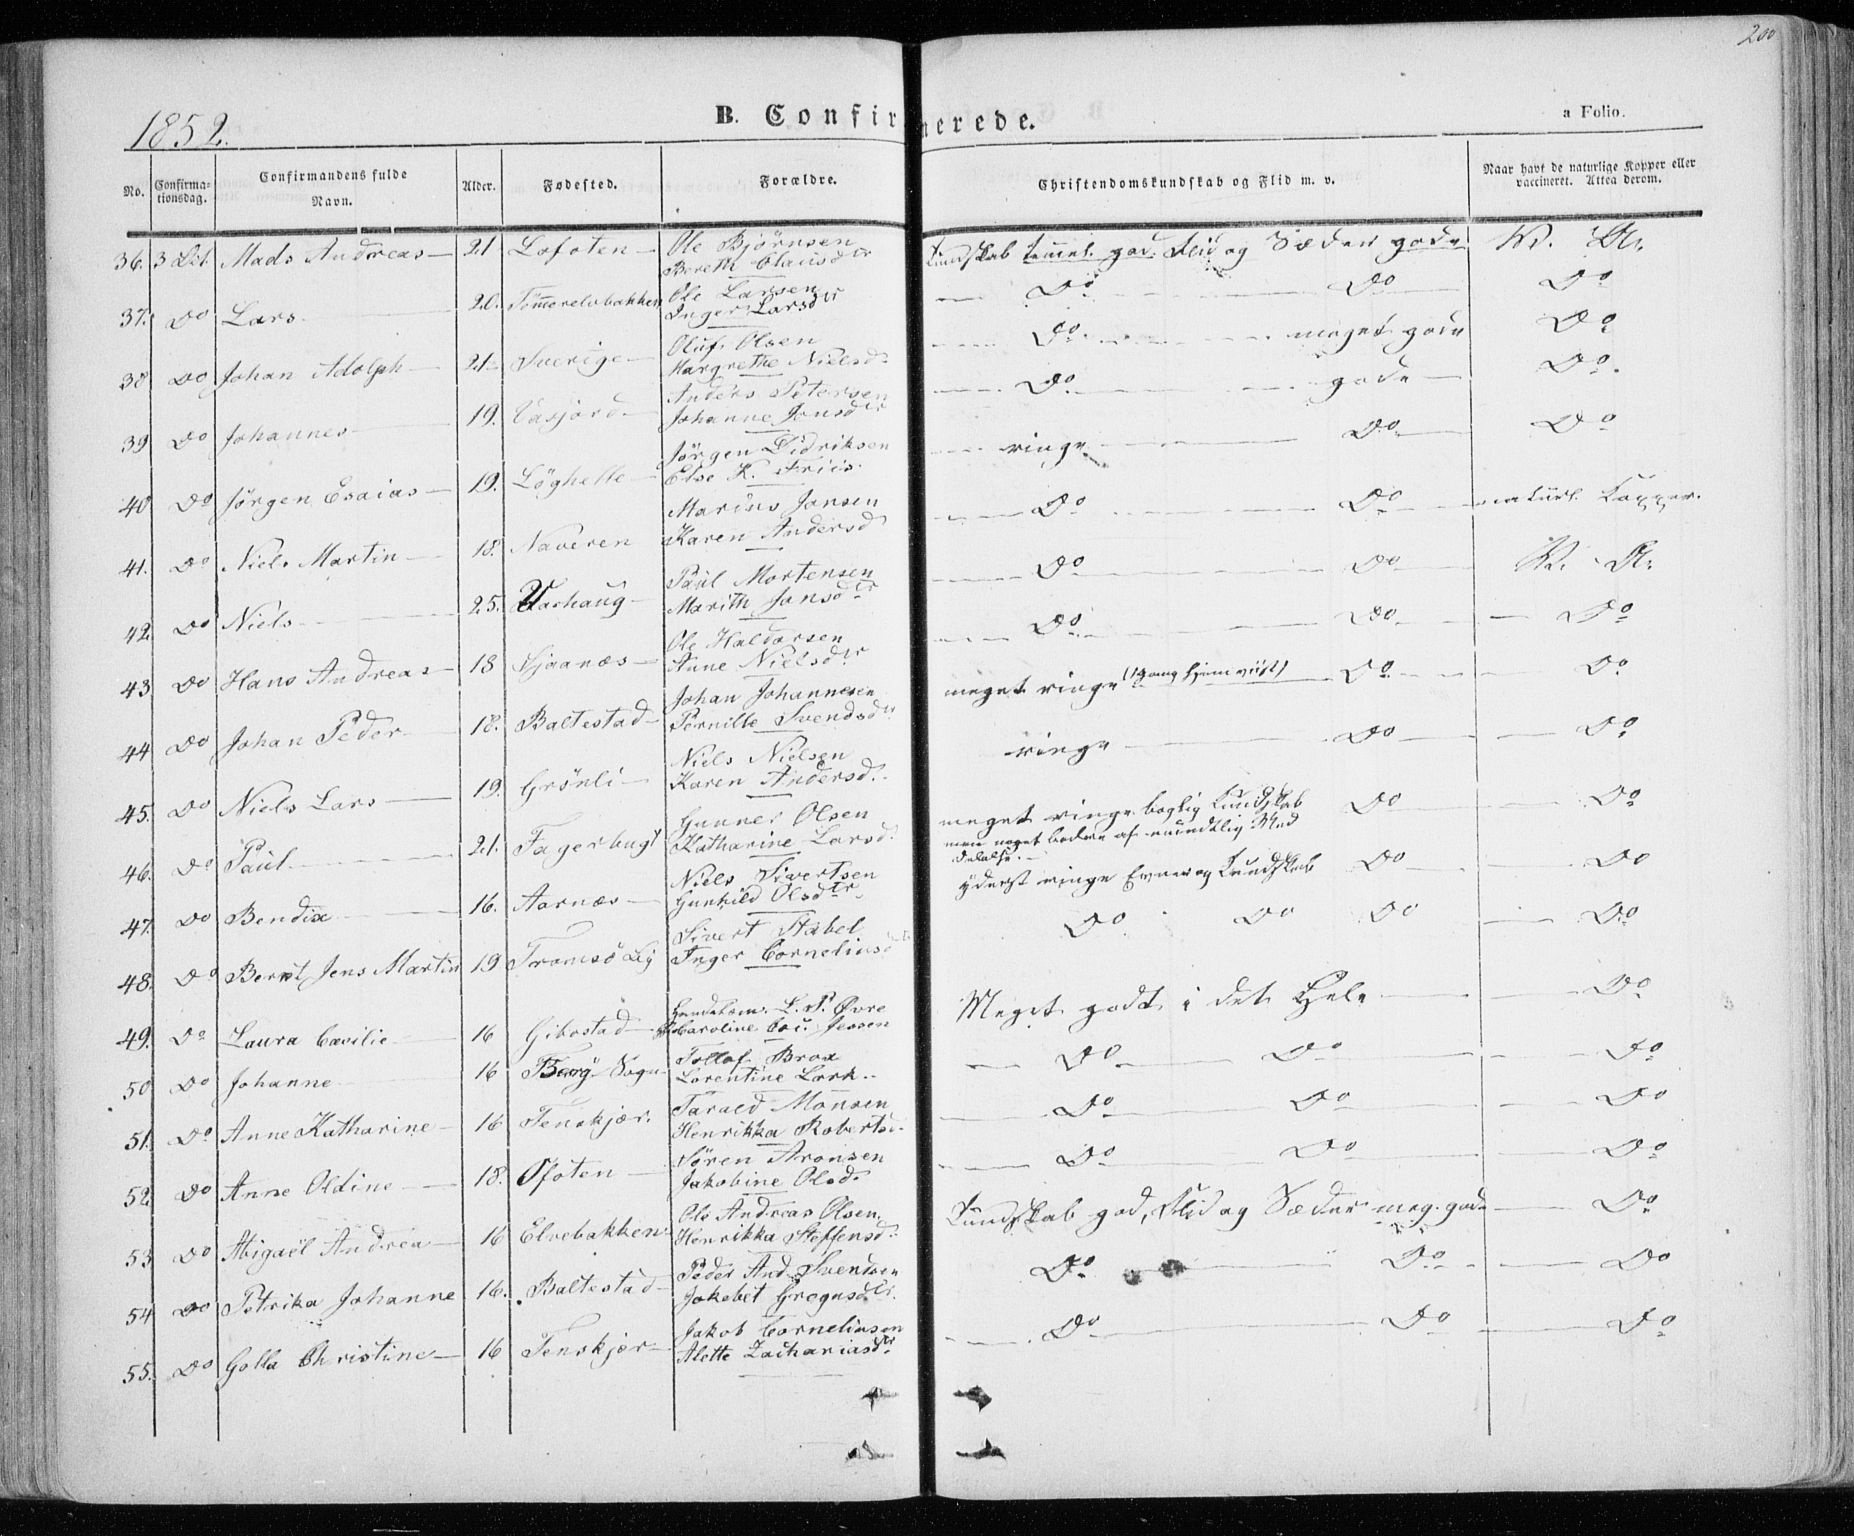 200
1852.
B. Confirmerede.
a Folio.
No.
Confirmationsdag.
Confirmandens fulde Navn.
Alder.
Fødested.
Forældre.
Christendomskundskab og Flid m. v.
Naar havt de naturlige Kopper eller vaccineret. Attea derom.
36. 3 Oct. Mads Andreas 21 Lofoten Ole Bjørnsen
Bereth Clausdtr
Kundskab temel. god. Flid og Sæder gode V. A.
37. Do Lars 20. Tömmerelvbakken Ole Larsen
Inger Larsdtr
Do Do Do
38 Do Johan Adolph 21 Sverige Oluf Olsen
Margrethe Nielsd.
Do meget gode Do
39 Do Johannes 19. Vasjord Anders Petersen
Johanne Jonsdtr
Do gode Do.
40 Do Jørgen Esaias 19. Löghelle Jørgen Didriksen
Else K. Friis.
ringe Do Do
41. Do Niels Martin 18. Naveren Marius Jansen
Karen Andersd
Do Do naturl. Kopper.
42. Do Niels 25. Varhaug Paul Mortensen
Marith Jonsdtr
Do Do V. A.
43 Do Hans Andreas 18 Gjøvnæs Ole Haldorsen
Anne Nielsdtr
Do Do Do
44 Do Johan Peder 18. Baltestad Johan Johannesen
Pernille Svendsdtr
meget ringe (1 gang hjemviist) Do Do
45. Do Niels Lars 19. Grönli Niels Nielsen
Karen Andersd.
ringe Do Do
46. Do Paul 21. Fagerbugt Gunner Olsen
Katharine Larsd.
meget ringe boglig Kundskab
men noget bedre af mundtlig Meddelelse. Do Do
47. Do Bendix 16. Aarnæs Niels Sivertsen
Gunhild Olsdtr
yderst ringe Evner og Kundskab Do Do
48. Do Bernt Jens Martin 19 Tromsö By Sivert Stabel
Inger Corneliusd
Do Do Do Do
49. Do Laura Cæcilie 16 Gibostad Handelsm. L. P. Øvre
Caroline Jessen
Meget godt i det Hele Do
50 Do Johanne 16 Berg Sogn Tollof Brox
Lorentine Lork
Do Do Do
51. Do Anne Katharine 16 Tenskjær. Tarald Monsen
Henrikka Robertsd.
Do Do Do
52. Do Anne Oldine 18. Ofoten Sören Aronsen
Jakobine Olsd.
Do Do Do
53 Do Abigaël Andrea 16 Elvebakken Ole Andreas Olsen
Henrikka Steffensd.
Kundskab god, Flid og Sæder meg. gode Do
54 Do Petrika Johanne 16. Baltestad Peder And. Svendsen
Jokobet Gregusdtr.
Do Do Do
55. Do Golla Christine 16 Tenskjær Jakob Corneliusen
Alette Zachariasdr
Do Do Do